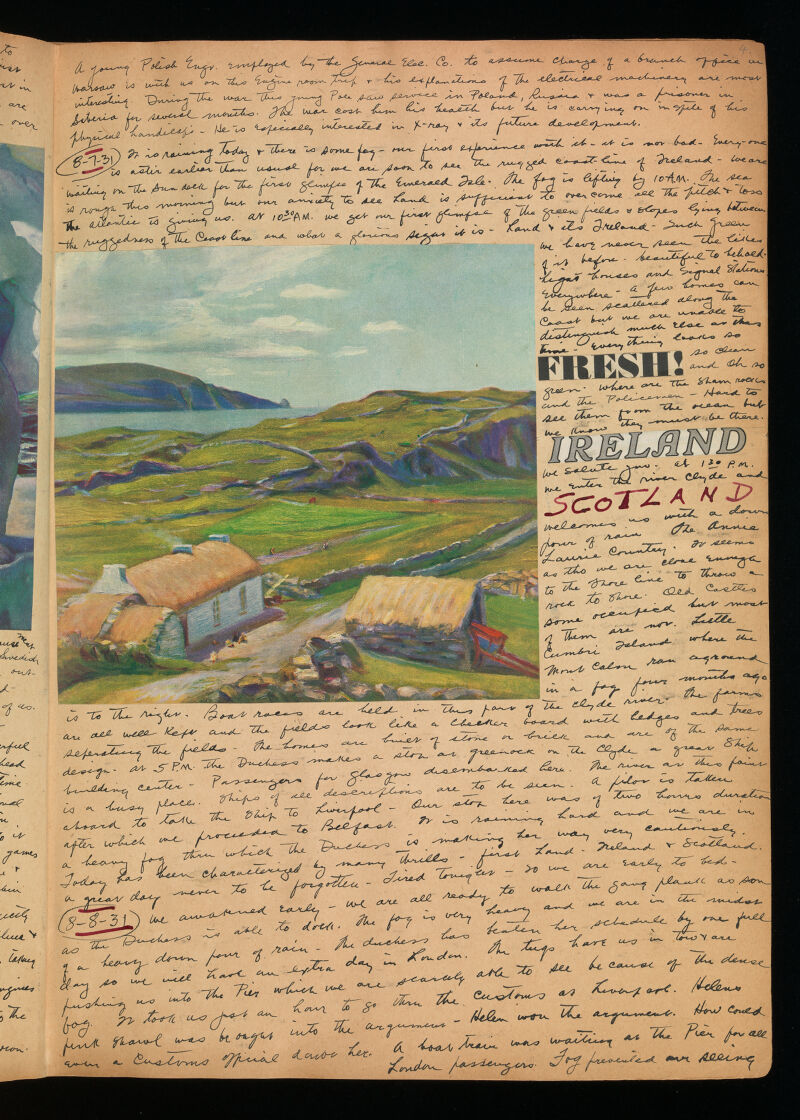 4.
to
rist
rt in
are
over
A young Polish Engr. employed by the General Elec. Co. to assume charge of a branch office in
Warsaw is with us on this Engine room trip & his explanations of the electrical machinery are most
interesting. During the war this young Pole saw service in Poland, Russia & was a prisoner in
Siberia for several months. The war cost him his health but he is carrying on in spite of his
physical handicap - He is especially interested in X-ray & its future development.
8-7-31 It is raining today & there is some fog - our first experience with it - it is not bad - Every-one
is astir earlier than usual for we are soon to see the rugged coast-line of Ireland - we are
waiting on the Sun deck for the first glimpse of the Emerald Isle. The fog is lifting by 10 AM. The sea
is rough this morning but our anxiety to see Land is sufficient to overcome all the pitch & toss
the atlantic is giving us. at 10:30 AM. we get our first glimpse of the green fields & slopes lying between
the ruggedness of the Coast line and what a glorious sight it is - Land & its Ireland - Such green
we have never seen the likes
of it before - beautiful to behold.
Light houses and Signal Stations
Everywhere - a few homes can
be seen scattered along the
Coast but we are unable to
distinguish much else at this
time. Everything looks so
FRESH! so clean
and Oh so
green. Where are the Sham rocks
and the Policemen - Hard to
see them from the ocean but
we know they must be there.
IRELAND
we salute you. at 1:30 P.M.
we enter the river Clyde and
SCOTLAND
welcomes us with a down
pour of rain. The Annie
Laurie Country. It seems
as tho we are close enough
to the Shore line to throw a
rock to shore. Old Castles
some occupied but most
of them are not. Little
Cumbri Island where the
Mont Calm ran aground
in a fog four months ago
is to the right. Boat races are held in this part of the Clyde river. The farms
are all well kept and the fields look like a checker board with hedges and trees
seperating the fields - The homes are built of stone or brick and are of the same
design. at 5 P.M. the Duchess makes a stop at greenock on the Clyde a great Ship
building center - Passengers for Glasgow disembarked here. The river at this point
is a busy place. Ships of all descriptions are to be seen. A pilot is taken
aboard to take the Ship to Liverpool - Our stop here was of two hours duration
after which we proceeded to Belfast. It is raining hard and we are in
a heavy fog thru which the Duchess is making her way very cautiously.
Today has been characterized by many thrills - first Land - Ireland & Scotland.
a great day never to be forgotten - Tired tonight - so we are Early to bed -
8-8-31 We awakened early - we are all ready to walk the gang plank as soon
as the Duchess is able to dock. The fog is very heavy and we are in the midst
of a heavy down pour of rain - The duchess has beaten her schedule by one full
day so we will have an extra day in London. The tugs have us in tow & are
pushing us into the Pier which we are scarcely able to see because of the dense
fog. It took us just an hour to go thru the customs at Liverpool. Helens
pink Shawl was brought into the argument - Helen won the argument. How could
even a Customs official doubt her. A boat train was waiting at the Pier for all
London passengers. Fog prevented our seeing